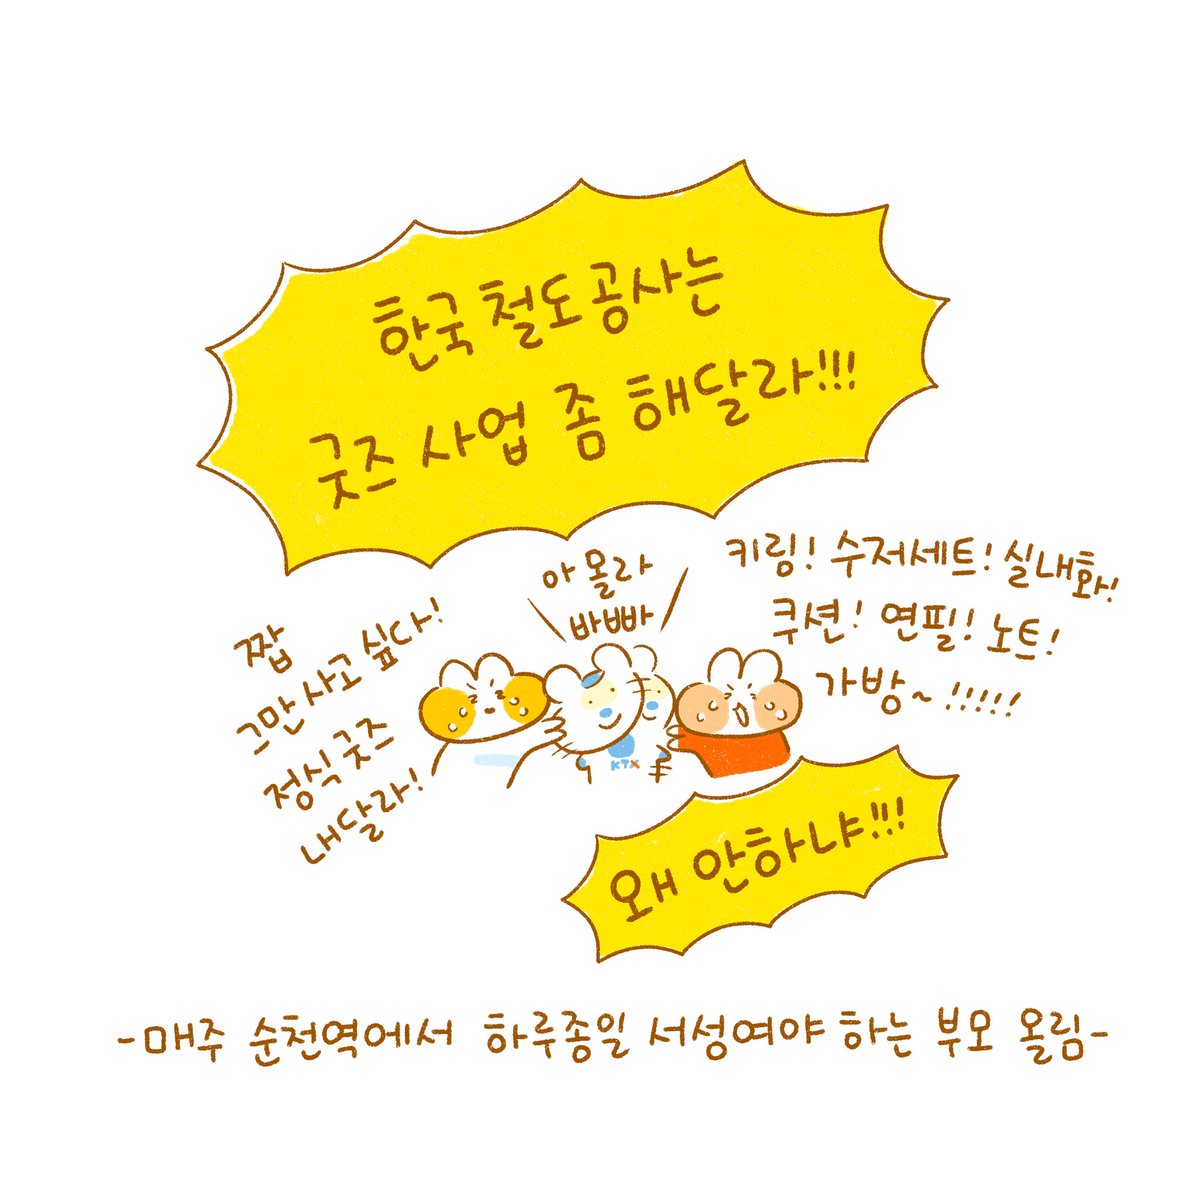 한국 철도 공사는
굿즈 사업 좀 해달라!!!
아 몰라
바빠
키링! 수저세트! 실내화!
쿠션! 연필! 노트!
가방~!!!!!
짭
그만 사고 싶다!
정식 굿즈
내달라!
KTX
왜 안하냐!!!
-매주 순천역에서 하루종일 서성여야 하는 부모 올림-